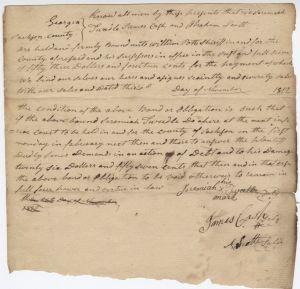 Georgia
Jackson county
Know all men by these presents that we Jeremiah
Tweedle James Cash and Abraham Scott
are held and firmly Bound unto William Potts Sheriff in and for the
County aforesaid and his successors in office in the Just and full sum
of fifty three Dollars and fourteen cents for the payment of which
We bind our selves our heirs and assigns Jointly and severly sealed
with our seals and Dated this
Day of November 1812
the condition of the above Bond or Obligation is such that
if the above bound Jeremiah Tweedle Do apear at the next infe-
rior court to be held in and for the county of Jackson on the first
monday in february next then and there to answer the
Jones Demand in an action of Debt and to his Damage
twenty six Dollars and fifty seven cents that then and in that case
the above Bond or Obligation to be Void otherways to remain in
full force power and virtue in law
Jeremiah his Tweedle
mark
James Cash
A Scott